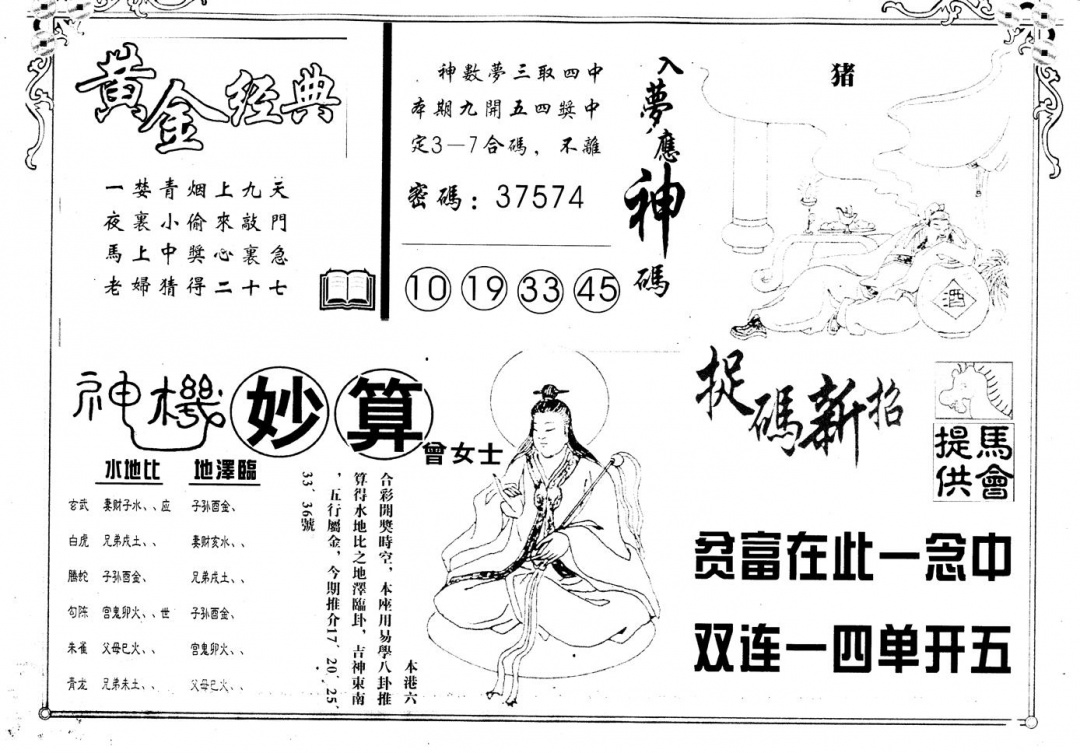 黄金经典
一婪青烟上九天
夜裏小偷來敲門
馬上中獎心裏急
老婦猜得二十七
神數夢三取四中
本期九開五四獎中
定3—7合碼，不離
密碼：37574
10 19 33 45
入夢應神碼
猪
酒
神機妙算
曾女士
水地比 地澤臨
玄武 妻财子水、、应 子孙酉金、、
白虎 兄弟戌土、、 妻财亥水、、
騰蛇 子孙酉金、 兄弟戌土、、
句陈 官鬼卯火、、世 子孙酉金、
朱雀 父母巳火、、 官鬼卯火、、
青龙 兄弟未土、、 父母巳火、、
本港六
合彩開獎時空，本座用易學八卦推
算得水地比之地澤臨卦，吉神東南
，五行屬金，今期推介17、20、25、
33、36號
捉碼新招
馬會
提供
贫富在此一念中
双连一四单开五